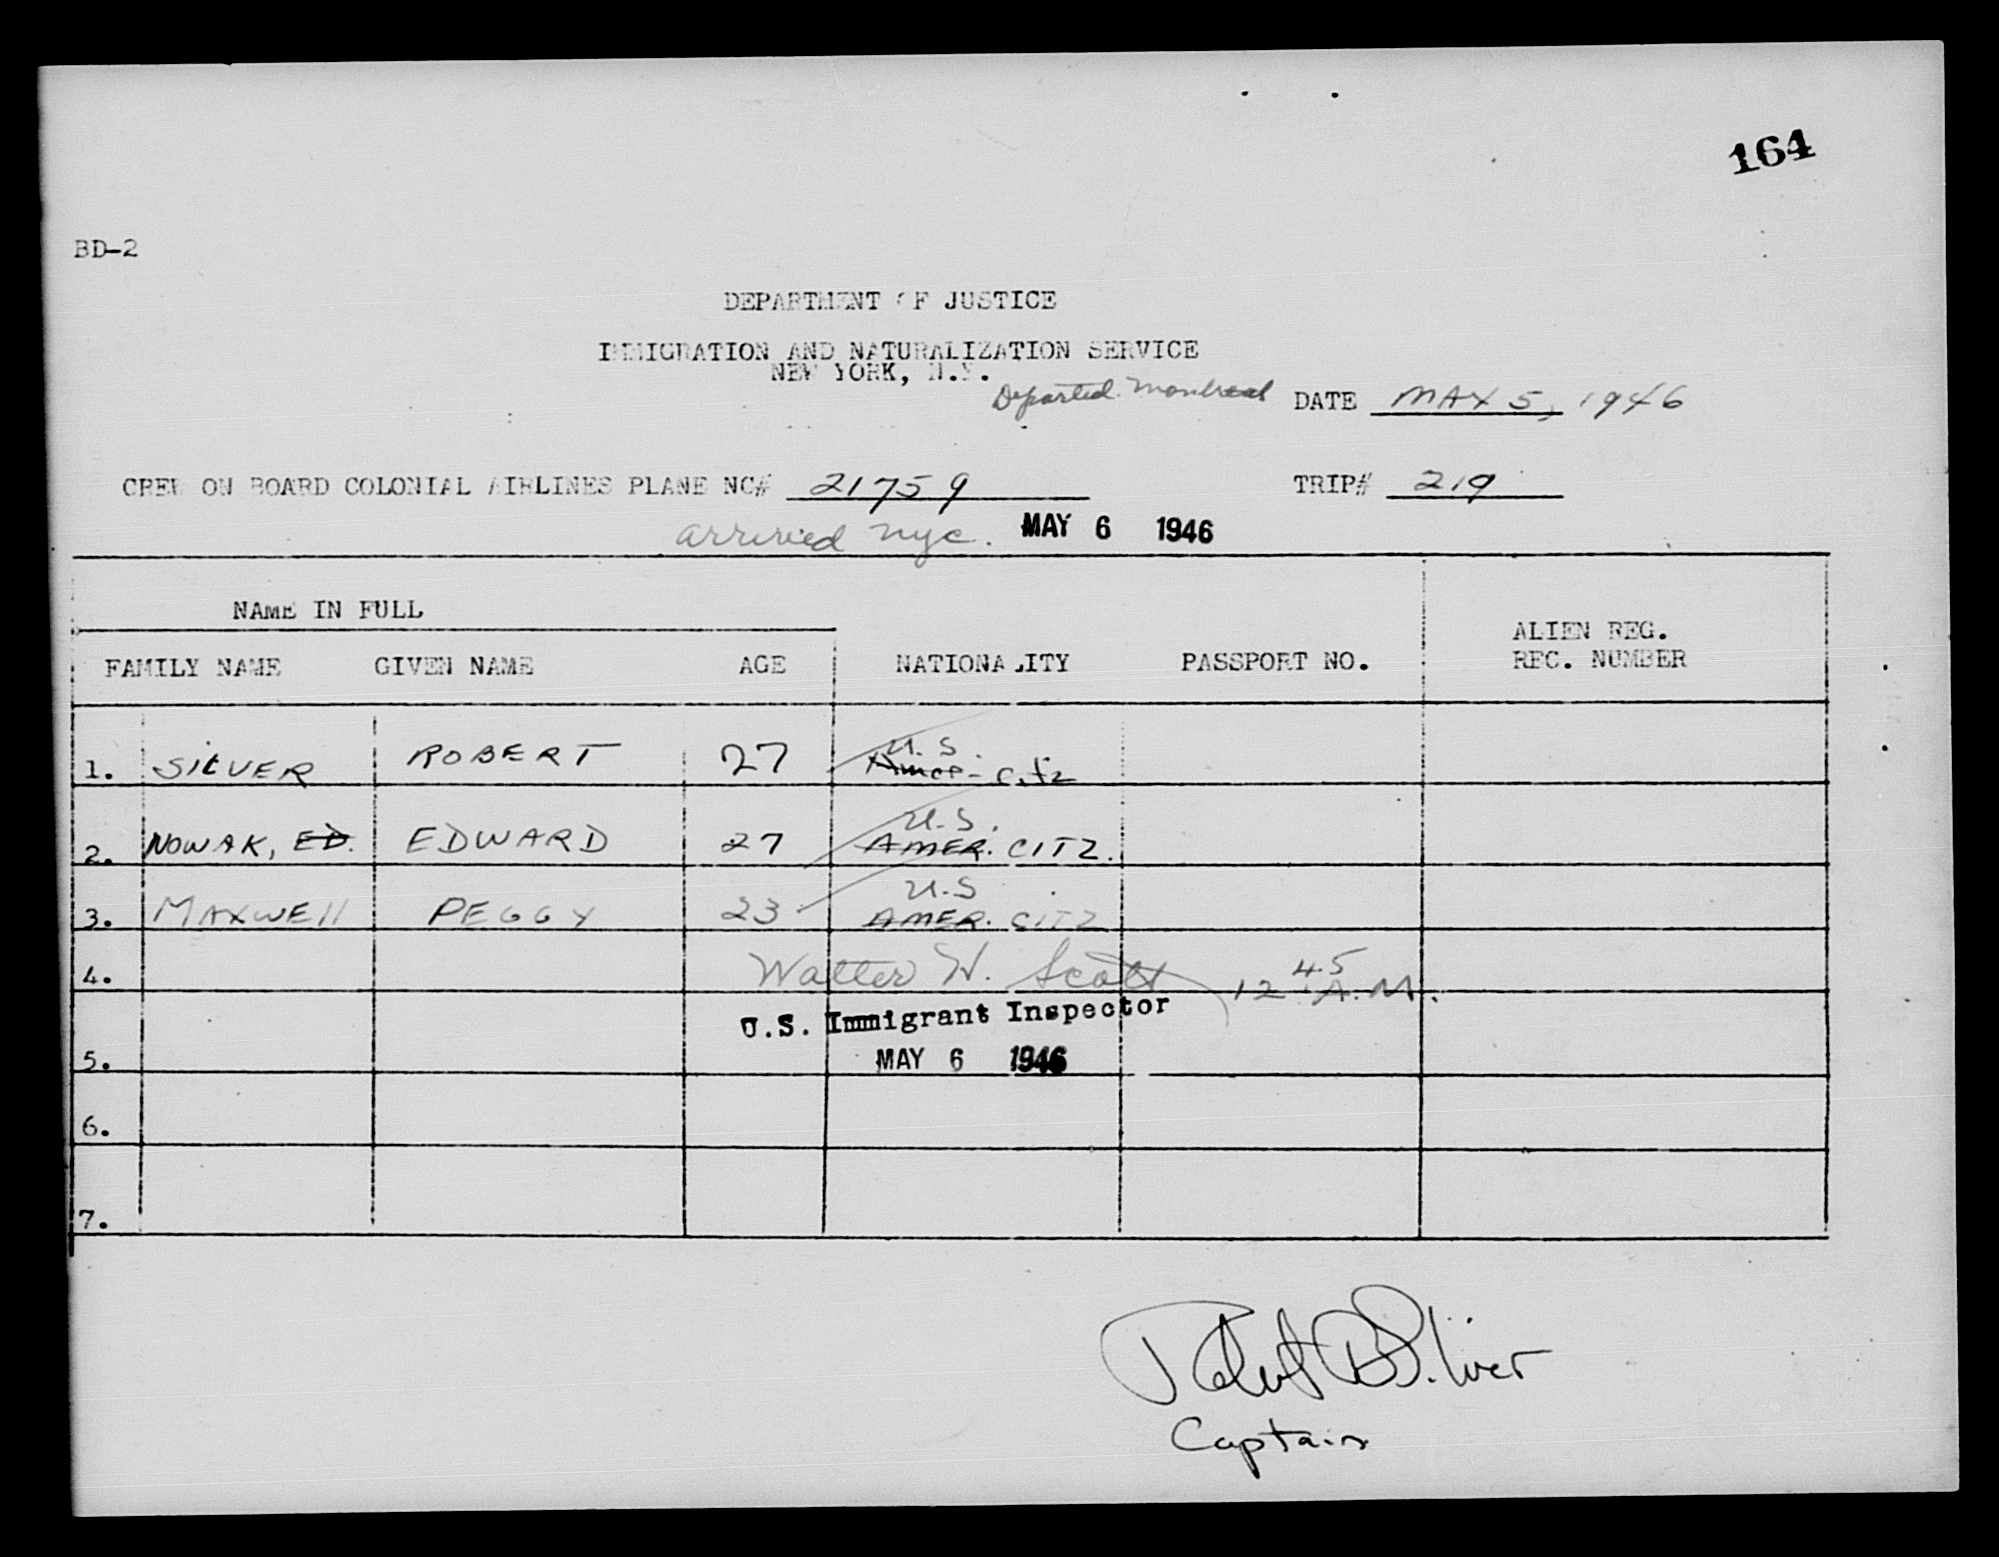 164
BD-2
DEPARTMENT OF JUSTICE
IMMIGRATION AND NATURALIZATION SERVICE
NEW YORK, N.Y.
Departed Montreal DATE MAY 5, 1946
CREW ON BOARD COLONIAL AIRLINES PLANE NC# 21759 TRIP# 219
arrived nyc. MAY 6 1946
NAME IN FULL
FAMILY NAME GIVEN NAME AGE NATIONALITY PASSPORT NO. ALIEN REG. REC. NUMBER
1. SILVER ROBERT 27 U.S. Amer. Citz
2. NOWAK, ED. EDWARD 27 U.S. AMER. CITZ.
3. MAXWELL PEGGY 23 U.S AMER. CITZ
4. Walter W. Scott 12 45 A.M.
U.S. Immigrant Inspector
5. MAY 6 1946
6.
7.
Robert B Silver
Captain